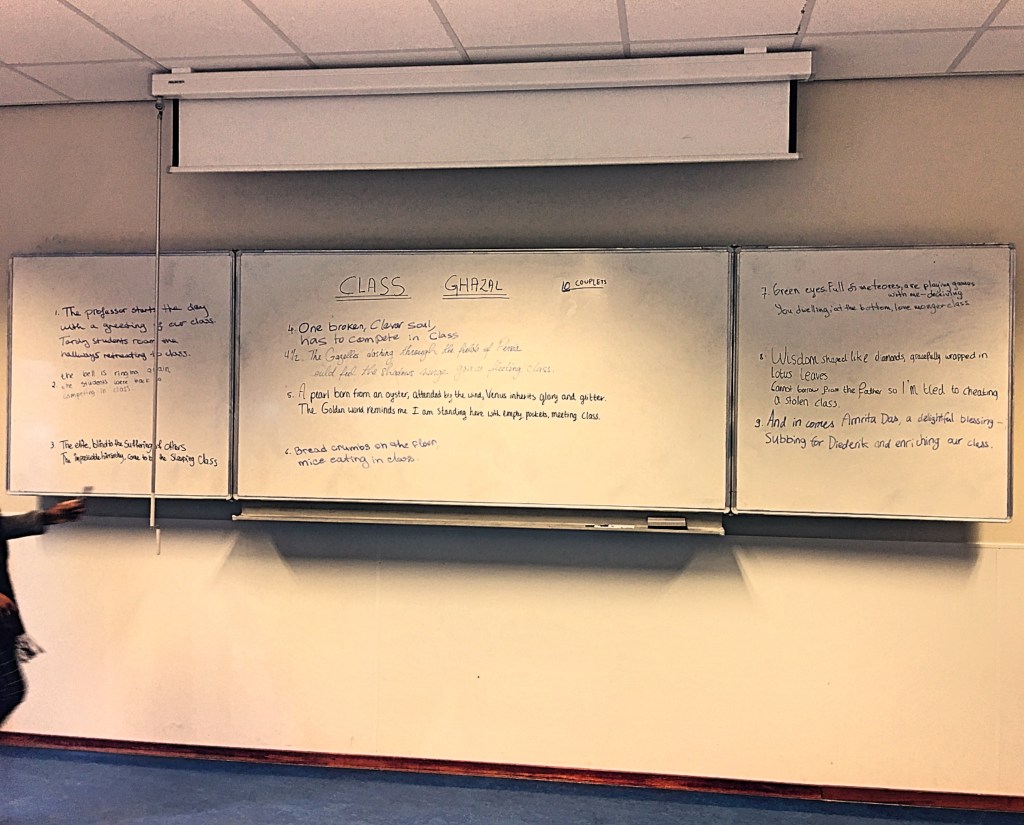 1. The professor starts the day
with a greeting to our class.
Tardy students roam the
hallways retreating to class.
the bell is ringing again
2. the students were
competing in class
3 The elite, blind to the suffering of others
The impossible hierarchy, come to be the sleeping class
CLASS GHAZAL 10 COUPLETS
4. One broken, Clever soul,
has to compete in Class
4½. The Gazelle dashing through the fields of
could feel the shadows fleeting class.
5. A pearl born from an oyster, attended by the wind, Venus inherits glory and glitter.
The Golden world reminds me I am standing here with empty pockets, meeting class.
6. Bread crumbs on the floor,
mice eating in class.
7 Green eyes. Full of meteores, are playing games
with me-deceiving
You dwelling at the bottom, love monger class
8. Wisdom shaped like diamonds, gracefully wrapped in
lotus leaves
Cannot borrow from the father so I'm tied to cheating
a stolen class.
9. And in comes Amrita Das, a delightful blessing-
Subbing for Diederik and enriching our class.